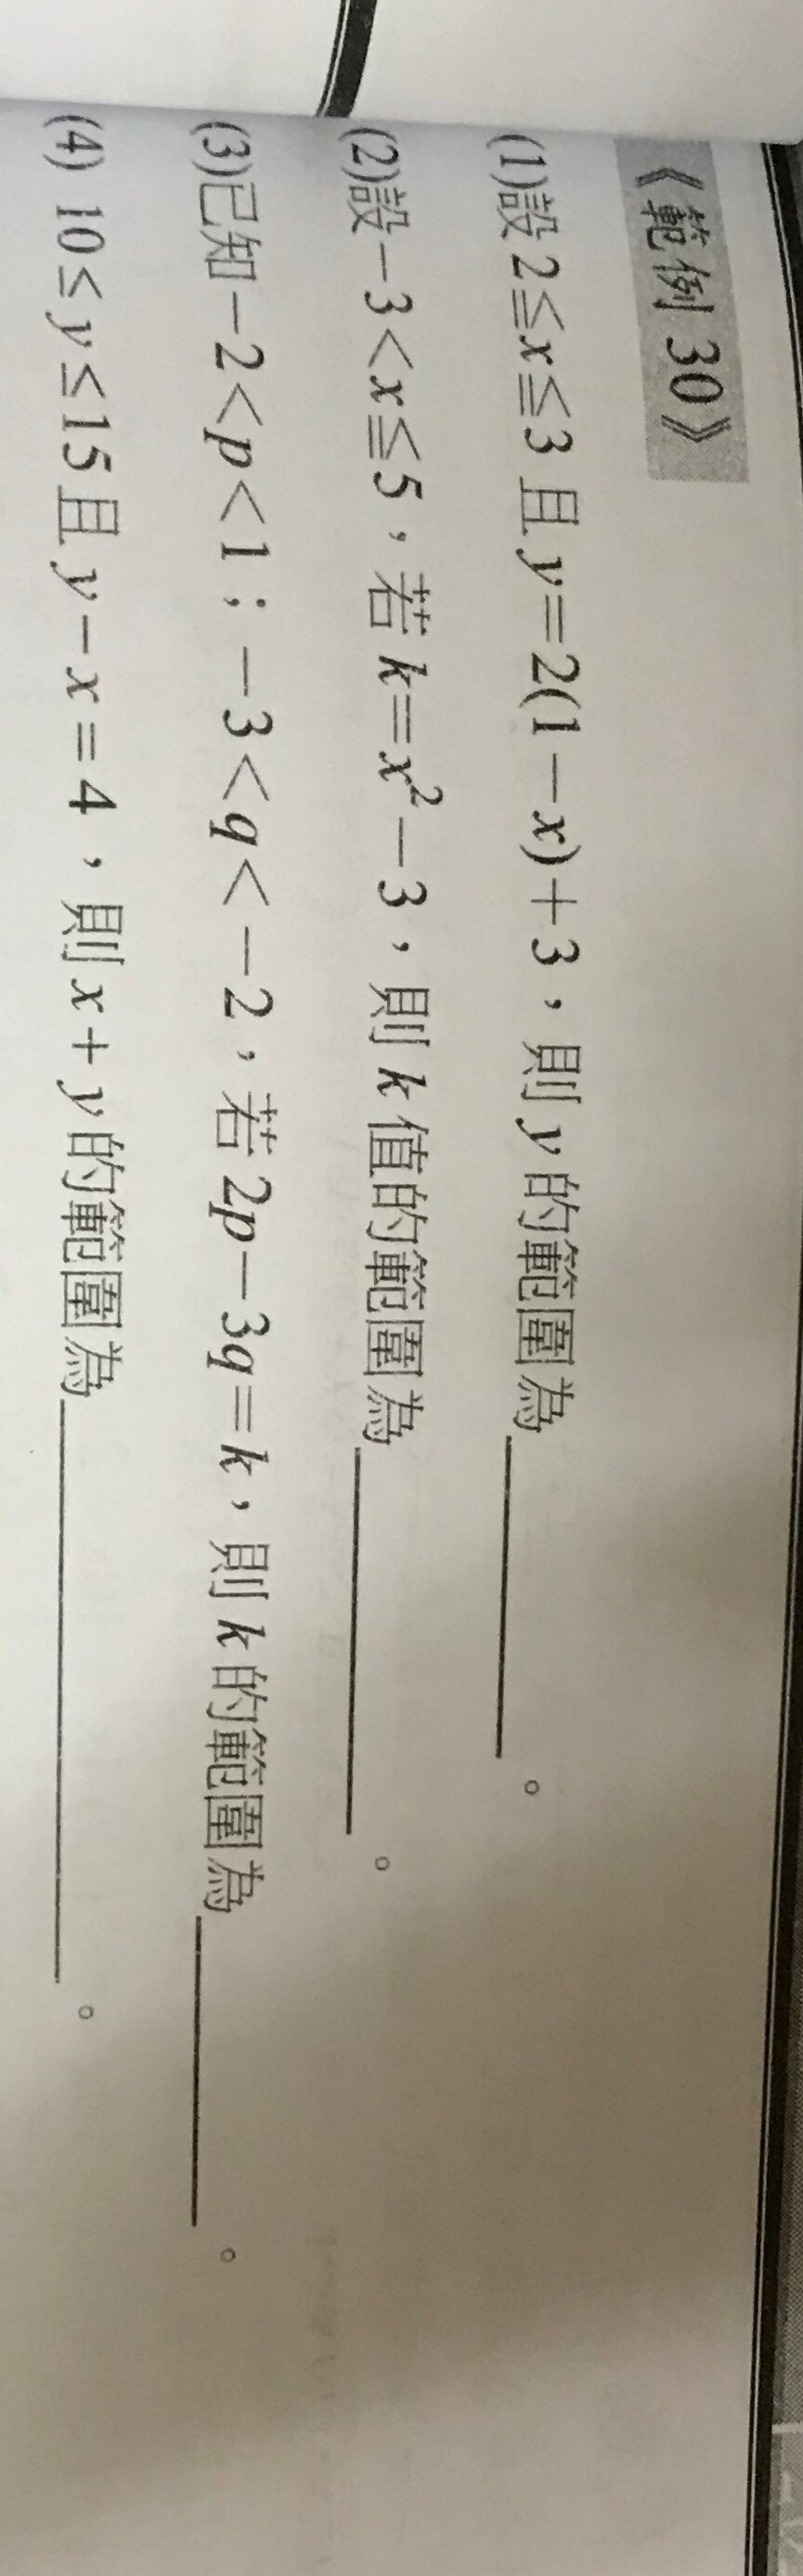 《範例 30》
(1)設 2≦x≦3 且 y=2(1－x)+3，則 y 的範圍為＿＿＿＿＿＿。
(2)設－3<x≦5，若 k=x²－3，則 k 值的範圍為＿＿＿＿＿＿。
(3)已知－2<p<1；－3<q<－2，若 2p－3q=k，則 k 的範圍為＿＿＿＿＿＿。
(4) 10≤y≤15 且 y－x=4，則 x+y 的範圍為＿＿＿＿＿＿＿＿＿。